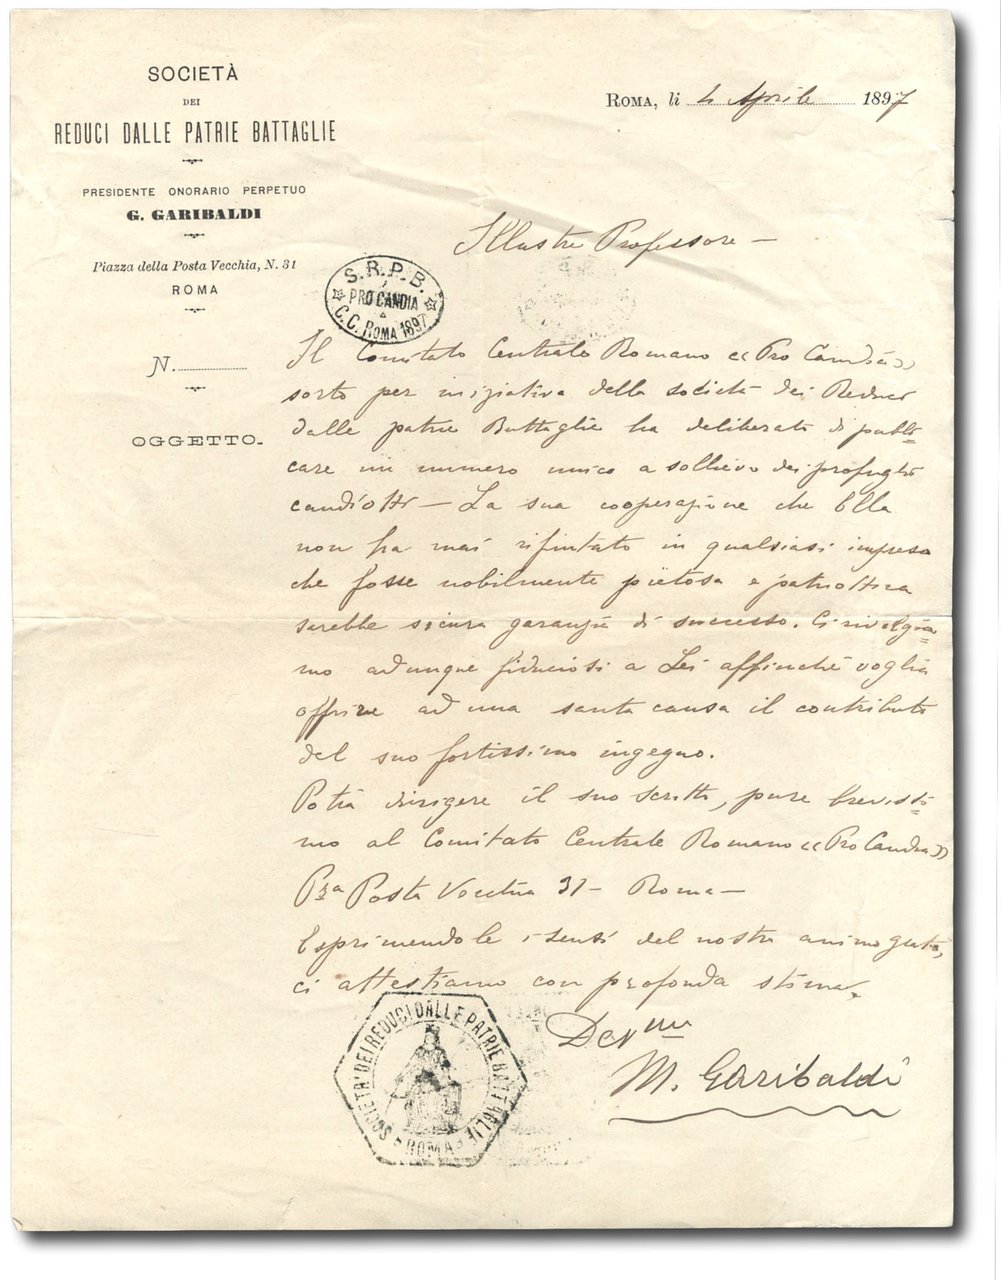 SOCIETÀ
DEI
REDUCI DALLE PATRIE BATTAGLIE
PRESIDENTE ONORARIO PERPETUO
G. GARIBALDI
Piazza della Posta Vecchia, N. 31
ROMA
N.
OGGETTO.
ROMA, li 4 Aprile 1897
S.R.P.B.
PRO CANDIA
C.C. ROMA 1897
Illustre Professore —
Il Comitato Centrale Romano «Pro Candia»
sorto per iniziativa della società dei Reduci
dalle patrie Battaglie ha deliberato di pubbli=
care un numero unico a sollievo dei profughi
candiotti — La sua cooperazione che Ella
non ha mai rifiutato in qualsiasi impresa
che fosse nobilmente pietosa e patriottica
sarebbe sicura garanzia di successo. Ci rivolgia=
mo adunque fiduciosi a Lei affinché voglia
offrire ad una santa causa il contributo
del suo fortissimo ingegno.
Potrà dirigere il suo scritto, pure brevissi=
mo al Comitato Centrale Romano «Pro Candia»
Pza Posta Vecchia 31 — Roma —
Esprimendole i sensi del nostro animo grato,
ci attestiamo con profonda stima.
Devmo
M. Garibaldi
SOCIETA' DEI REDUCI DALLE PATRIE BATTAGLIE
ROMA